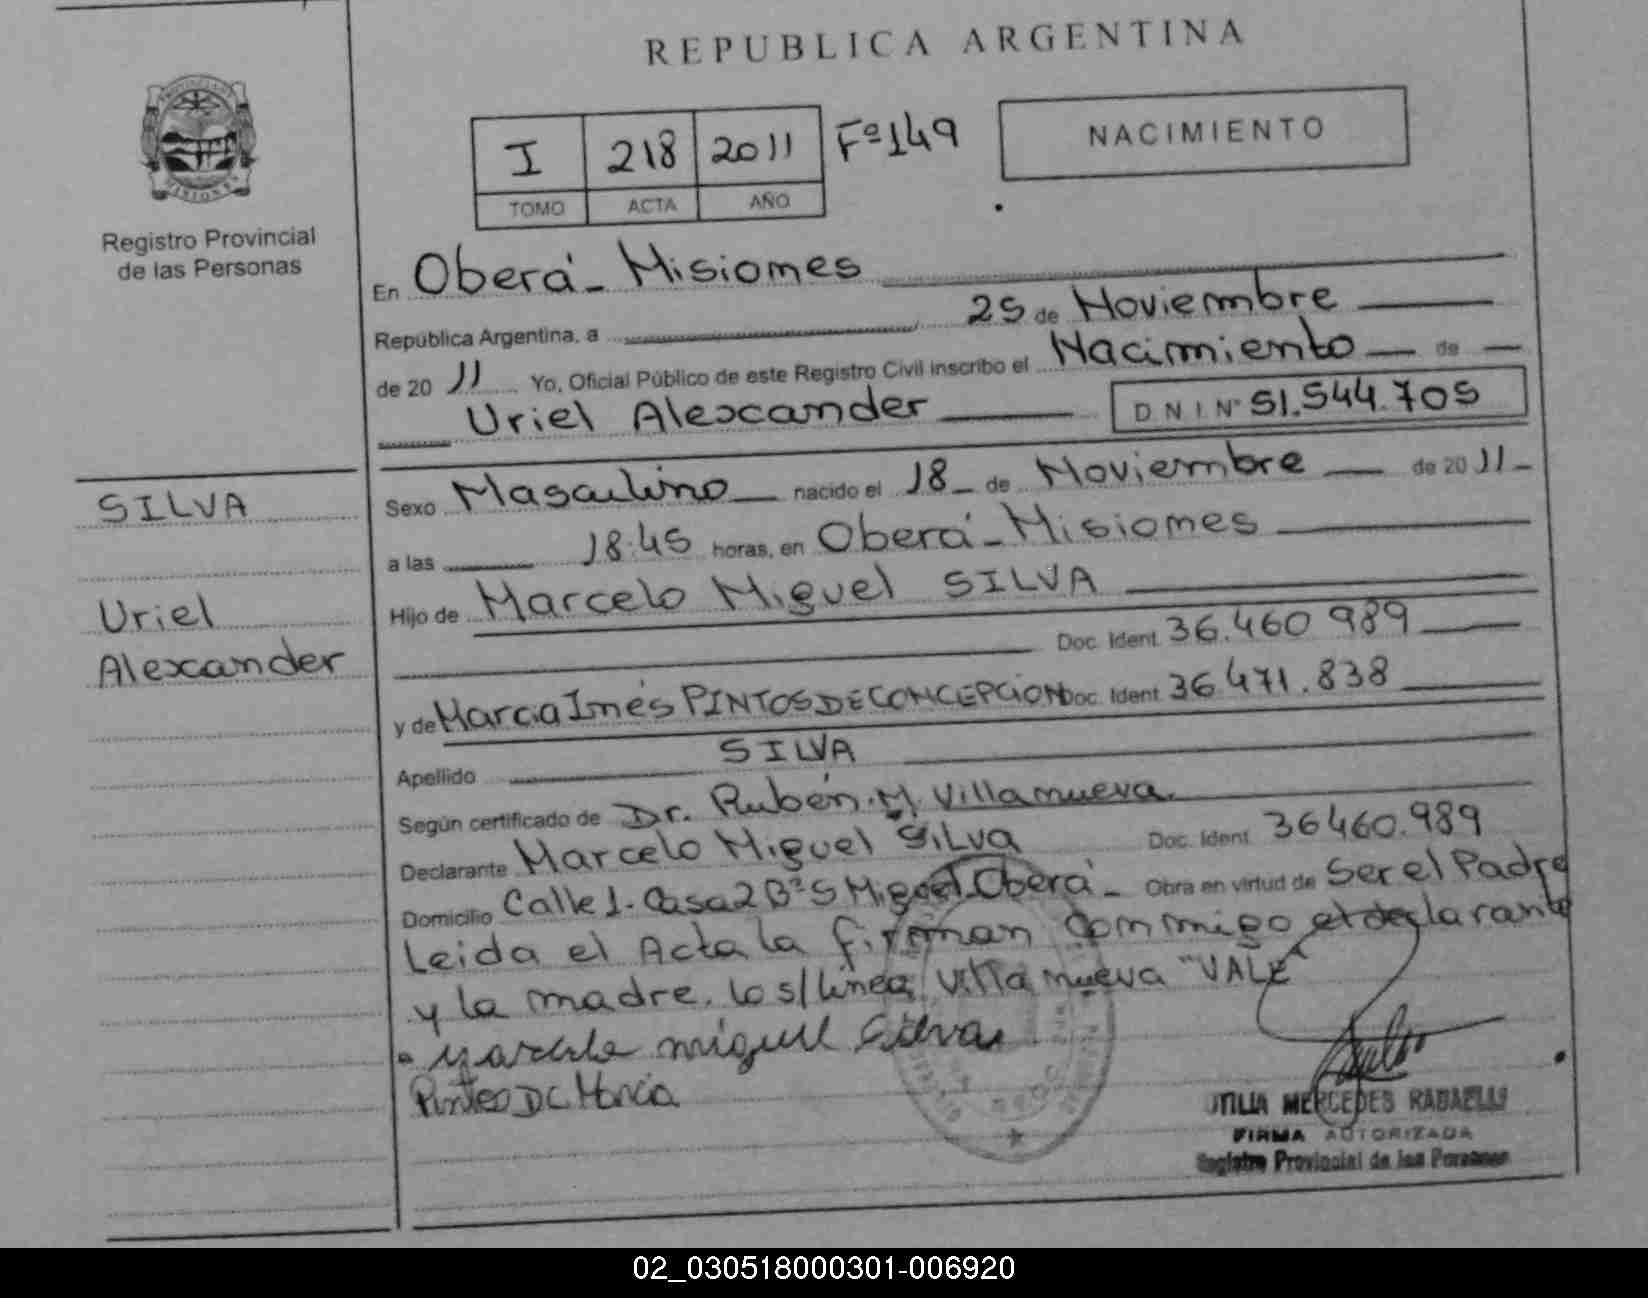 REPUBLICA ARGENTINA
I 218 2011 Fº149
TOMO ACTA AÑO
NACIMIENTO
PROVINCIA DE MISIONES
Registro Provincial
de las Personas
En Oberá - Misiones
República Argentina, a 25 de Noviembre
de 2011 Yo, Oficial Público de este Registro Civil inscribo el Nacimiento de
Uriel Alexander D.N.I. Nº 51.544.705
SILVA
Uriel
Alexander
Sexo Masculino nacido el 18 de Noviembre de 2011
a las 18:45 horas, en Oberá - Misiones
Hijo de Marcelo Miguel SILVA
Doc. Ident. 36.460.989
y de Marcia Inés PINTOS DE CONCEPCION Doc. Ident. 36.471.838
Apellido SILVA
Según certificado de Dr. Rubén M. Villanueva.
Declarante Marcelo Miguel SILVA Doc. Ident. 36460.989
Domicilio Calle 1- Casa 2 Bº S Miguel Oberá - Obra en virtud de Ser el Padre
Leida el Acta la firman conmigo el declarante
y la madre. Lo s/linea, Villanueva "VALE"
miguel Silva
Pintos DC Marcia
MERCEDES
FIRMA AUTORIZADA
Registro Provincial de las Personas
02_030518000301-006920